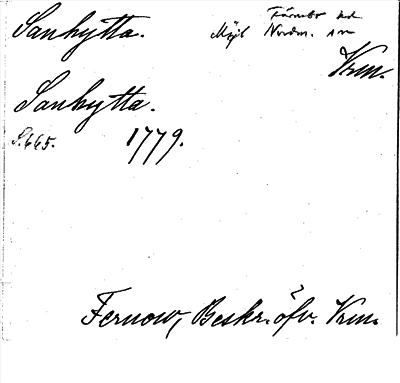 Sanhytta.
Färnebo hd
Möjl Nordm. sn
Vrm.
Sanhytta.
S. 665.
1779.
Fernow, Beskr. öfv. Vrm.